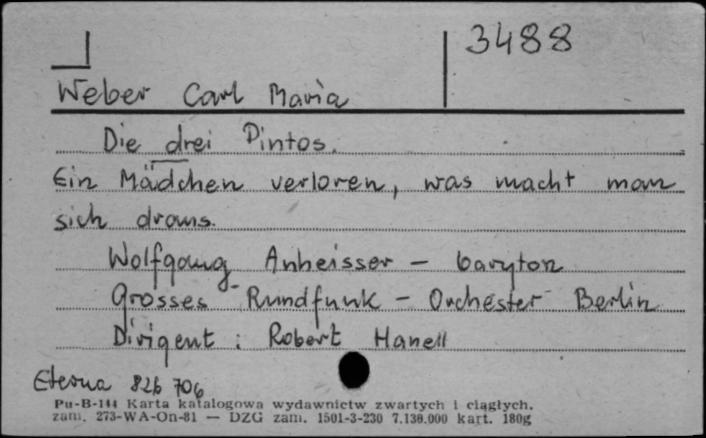 3488
Weber Carl Maria
Die drei Pintos.
Ein Mädchen verloren, was macht man
sich draus.
Wolfgang Anheisser - baryton
Grosses Rundfunk - Orchester Berlin
Dirigent : Robert Hanell
Eterna 826 706
Pu-B-144 Karta katalogowa wydawnictw zwartych i ciągłych.
zam. 273-WA-On-81 — DZG zam. 1501-3-230 7.130.000 kart. 180g